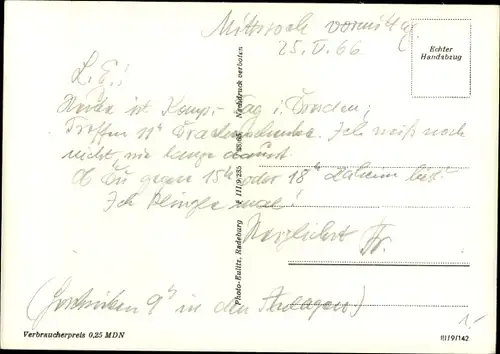 Mittwoch vormittag
25. V. 66
Echter
Handabzug
L. E.!
Heute ist Kamp.-Tag i. Dresden,
Treffen 11ʰ. Ich weiß noch
nicht, wie lange dauert.
Ob Du gegen 15ʰ oder 18ʰ daheim bist?
Ich klingle mal!
Herzlichst Fr.
(Geschrieben 9ʰ in den)
Photo-Eulitz, Radeburg Nachdruck verboten
Verbraucherpreis 0,25 MDN
III/9/142
1,-